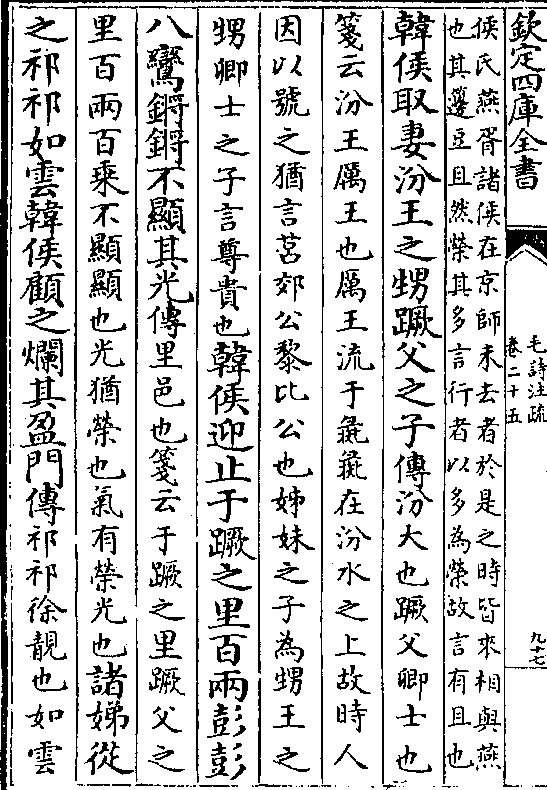 欽定四庫全書
毛詩注疏
卷二十五
九十七
侯氏燕胥諸侯在京師未去者於是之時皆來相與燕
也其籩豆且然榮其多言行者以多為榮故言有且也
韓侯取妻汾王之甥蹶父之子傳汾大也蹶父卿士也
箋云汾王厲王也厲王流于彘彘在汾水之上故時人
因以號之猶言莒郊公黎比公也姊妹之子為甥王之
甥卿士之子言尊貴也韓侯迎止于蹶之里百兩彭彭
八鸞鏘鏘不顯其光傳里邑也箋云于蹶之里蹶父之
里百兩百乘不顯顯也光猶榮也氣有榮光也諸娣從
之祁祁如雲韓侯顧之爛其盈門傳祁祁徐靚也如雲